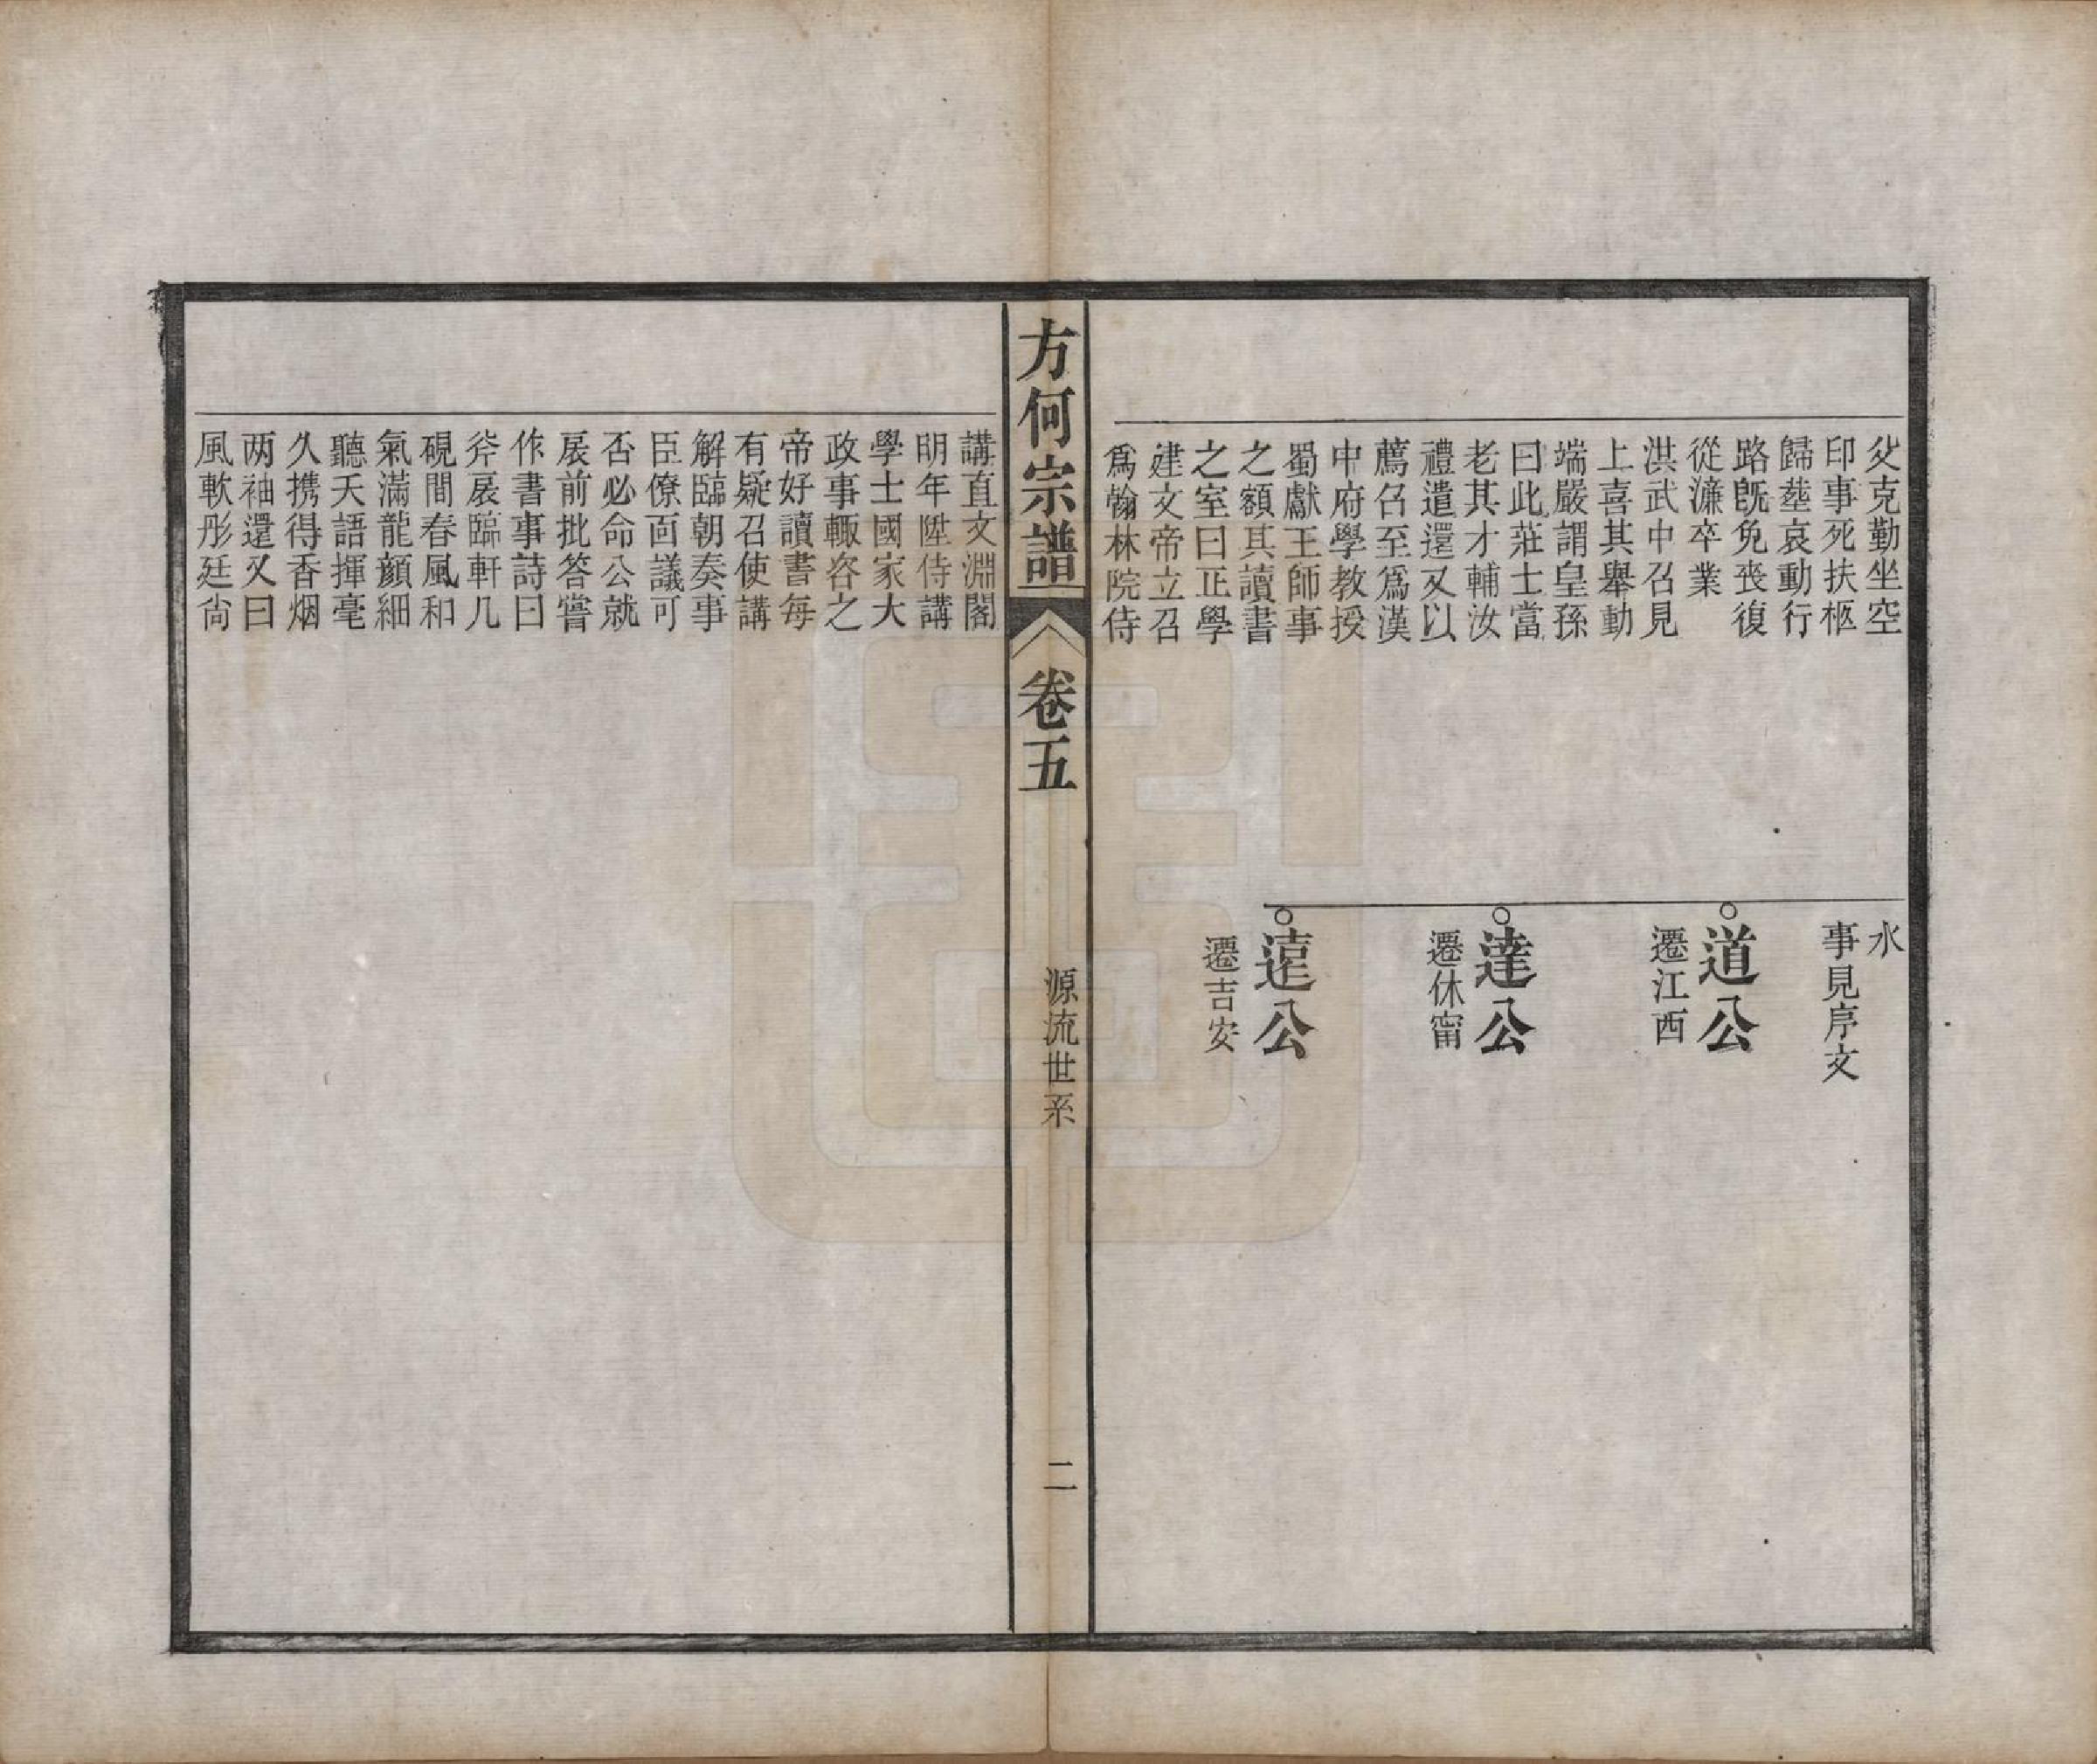 父克勤坐空
印事死扶柩
歸塟哀動行
路旣免喪復
從濂卒業
洪武中召見
上喜其舉動
端嚴謂皇孫
曰此莊士當
老其才輔汝
禮遣還又以
薦召至爲漢
中府學教授
蜀獻王師事
之額其讀書
之室曰正學
建文帝立召
爲翰林院侍
水
事見序文
道公
遷江西
達公
遷休甯
遠公
遷吉安
方何宗譜
卷五
源流世系
二
講直文淵閣
明年陞侍講
學士國家大
政事輙咨之
帝好讀書每
有疑召使講
解臨朝奏事
臣僚面議可
否必命公就
扆前批答嘗
作書事詩曰
斧扆臨軒几
硯間春風和
氣滿龍顏細
聽天語揮毫
久携得香烟
两袖還又曰
風軟彤廷尙